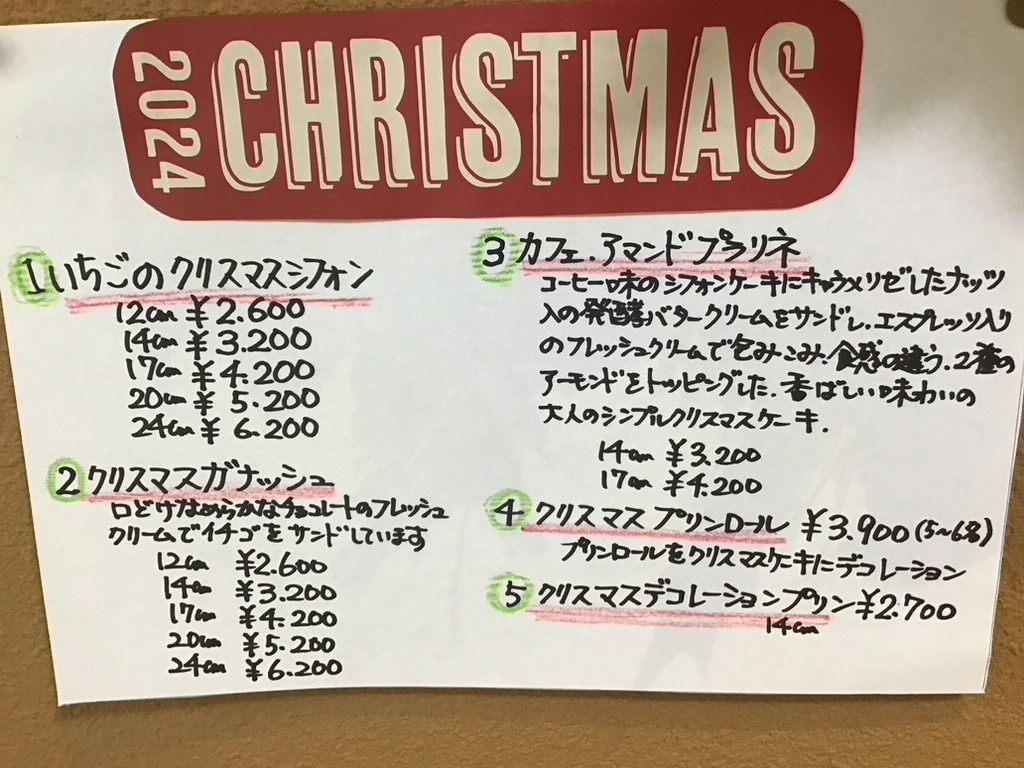 2024 CHRISTMAS
1 いちごのクリスマスシフォン
12cm ¥2.600
14cm ¥3.200
17cm ¥4.200
20cm ¥5.200
24cm ¥6.200
2 クリスマスガナッシュ
口どけなめらかなチョコレートのフレッシュ
クリームでイチゴをサンドしています
12cm ¥2.600
14cm ¥3.200
17cm ¥4.200
20cm ¥5.200
24cm ¥6.200
3 カフェ.アマンドプラリネ
コーヒー味のシフォンケーキにキャラメリゼしたナッツ
入の発酵バタークリームをサンドし.エスプレッソ入り
のフレッシュクリームで包みこみ.食感の違う.2種の
アーモンドをトッピングした.香ばしい味わいの
大人のシンプルクリスマスケーキ.
14cm ¥3.200
17cm ¥4.200
4 クリスマスプリンロール ¥3.900(5~6名)
プリンロールをクリスマスケーキにデコレーション
5 クリスマスデコレーションプリン¥2.700
14cm